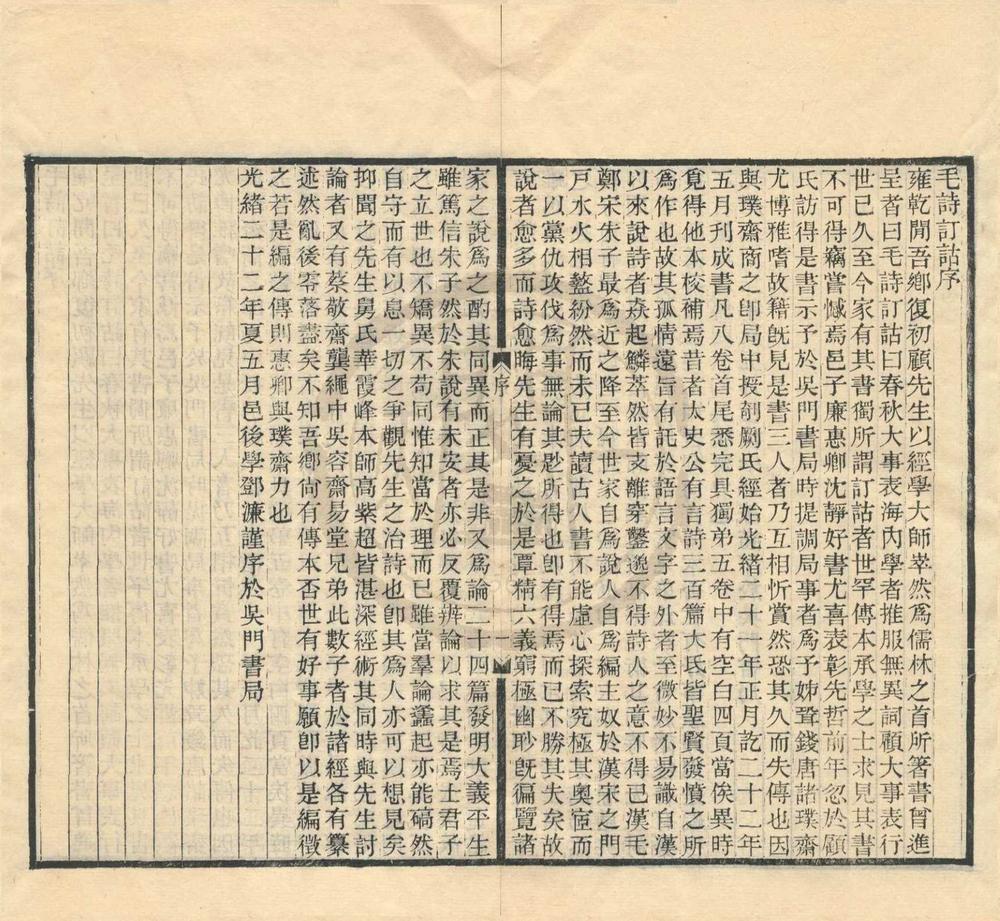 毛詩訂詁序
雍乾閒吾鄉復初顧先生以經學大師崒然爲儒林之首所箸書曾進
呈者曰毛詩訂詁曰春秋大事表海內學者推服無異詞顧大事表行
世已久至今家有其書獨所謂訂詁者世罕傳本承學之士求見其書
不可得竊嘗憾焉邑子廉惠卿沈靜好書尤喜表彰先哲前年忽於顧
氏訪得是書示予於吳門書局時提調局事者爲予姊聟錢唐諸璞齋
尤博雅嗜故籍旣見是書三人者乃互相忻賞然恐其久而失傳也因
與璞齋商之卽局中授剞劂氏經始光緒二十一年正月訖二十二年
五月刊成書凡八卷首尾悉完具獨弟五卷中有空白四頁當俟異時
覓得他本校補焉昔者太史公有言詩三百篇大氐皆聖賢發憤之所
爲作也故其孤情遠旨有託於語言文字之外者至微妙不易識自漢
以來說詩者猋起鱗萃然皆支離穿鑿邈不得詩人之意不得已漢毛
鄭宋朱子最爲近之降至今世家自爲說人自爲編主奴於漢宋之門
戸水火相盭紛然而未已夫讀古人書不能虛心探索究極其奧窔而
一以黨仇攻伐爲事無論其尟所得也卽有得焉而已不勝其失矣故
說者愈多而詩愈晦先生有憂之於是覃精六義窮極幽眇旣徧覽諸
序
一
家之說爲之酌其同異而正其是非又爲論二十四篇發明大義平生
雖篤信朱子然於朱說有未安者亦必反覆辨論以求其是焉士君子
之立世也不矯異不苟同惟知當於理而已雖當羣論蠭起亦能碻然
自守而有以息一切之爭觀先生之治詩也卽其爲人亦可以想見矣
抑聞之先生舅氏華霞峰本師高紫超皆湛深經術其同時與先生討
論者又有蔡敬齋龔繩中吳容齋易堂兄弟此數子者於諸經各有纂
述然亂後零落盡矣不知吾鄉尙有傳本否世有好事願卽以是編徵
之若是編之傳則惠卿與璞齋力也
光緒二十二年夏五月邑後學鄧濂謹序於吳門書局